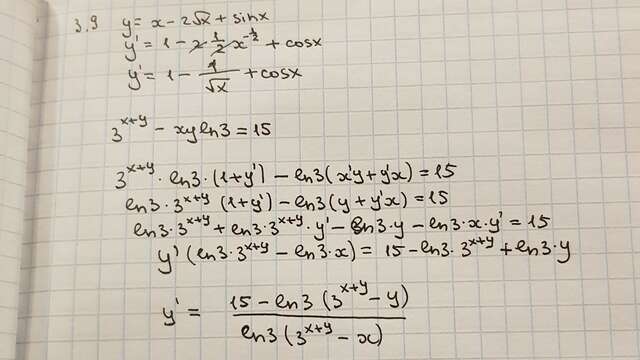 3.9 y = x - 2√x + sinx
y' = 1 - 2·1/2 x^(-1/2) + cosx
y' = 1 - 1/√x + cosx
3^(x+y) - xy ln3 = 15
3^(x+y) · ln3 · (1+y') - ln3 (x'y + y'x) = 15
ln3 · 3^(x+y) (1+y') - ln3 (y + y'x) = 15
ln3 · 3^(x+y) + ln3 · 3^(x+y) · y' - ln3 · y - ln3 · x · y' = 15
y' (ln3 · 3^(x+y) - ln3 · x) = 15 - ln3 · 3^(x+y) + ln3 · y
y' = (15 - ln3 (3^(x+y) - y)) / (ln3 (3^(x+y) - x))